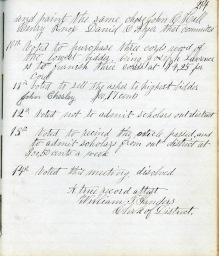 214
and paint the same chose John C Hall
Henry Knox Daniel D that committee
10th Voted to purchase three cords wood of
the lowest bidder, being Joseph
to furnish three cords at $4,25 per
Cord
11th Voted to sell the ashes to highest bidder
John Chesley for 17 cents
12th Voted not to admit scholars out district
13th Voted to recind the article passed and
to admit scholars from out district at
cents a week
14th Voted the meeting disolved
A true record attest
William Sanders
Clerk of District.